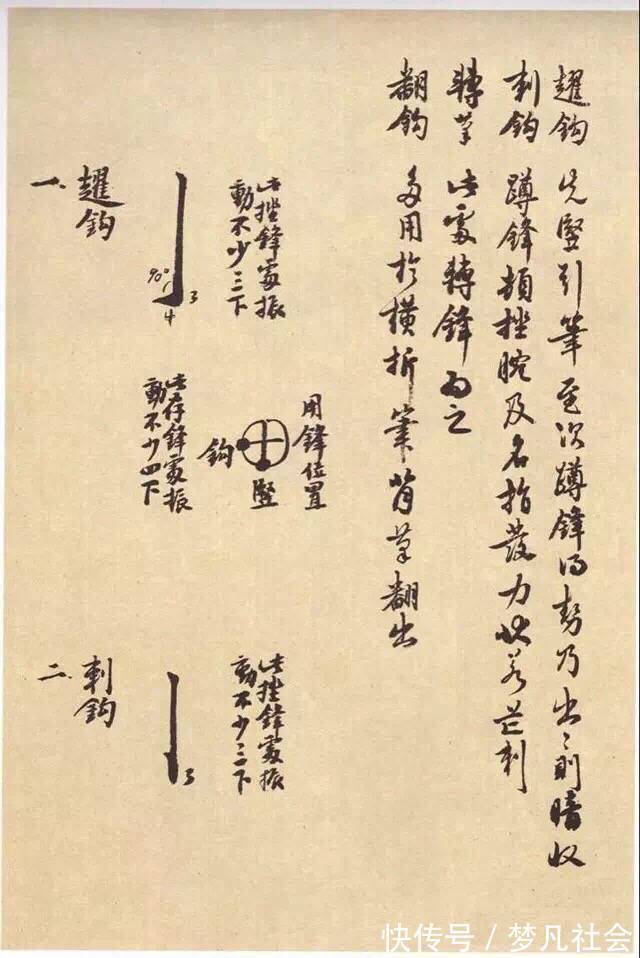 趯鈎　先竪引筆至次蹲鋒得勢乃出〻則暗收
刺鈎　蹲鋒頓挫腕及名指發力狀若芒刺
轉筆　此處轉鋒為之
翻鈎　多用於橫折筆背筆翻出
一、趯鈎
90°
3
4
此挫鋒處振
動不少三下
用鋒位置
鈎
竪
此存鋒處振
動不少四下
二、刺鈎
3
此挫鋒處振
動不少三下
快传号 / 梦凡社会